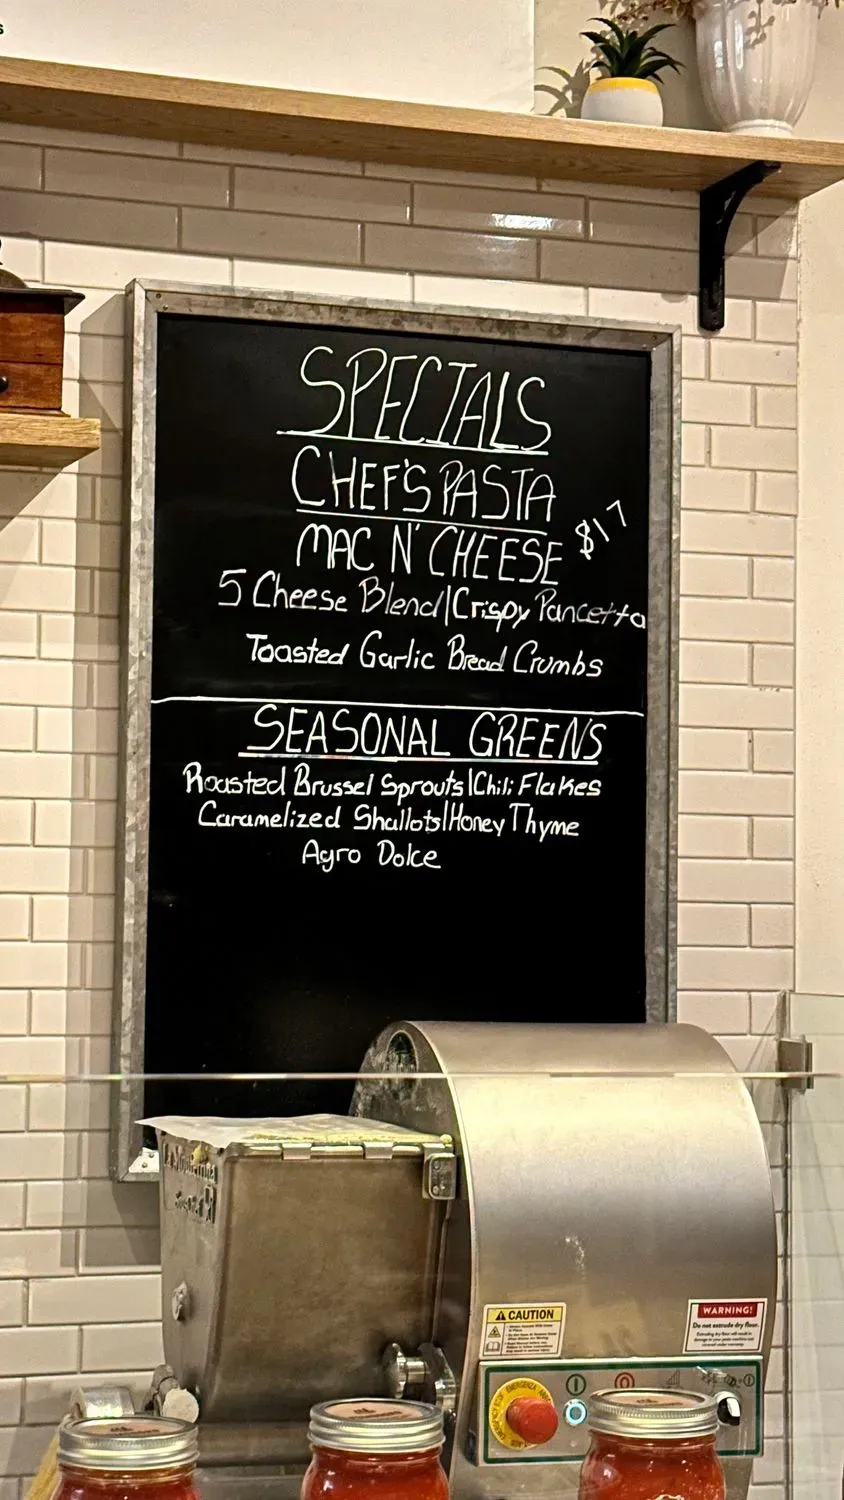 SPECIALS
CHEF'S PASTA
MAC N' CHEESE $17
5 Cheese Blend|Crispy Pancetta
Toasted Garlic Bread Crumbs
SEASONAL GREENS
Roasted Brussel Sprouts|Chili Flakes
Caramelized Shallots|Honey Thyme
Agro Dolce
CAUTION
WARNING!
Do not extrude dry flour.